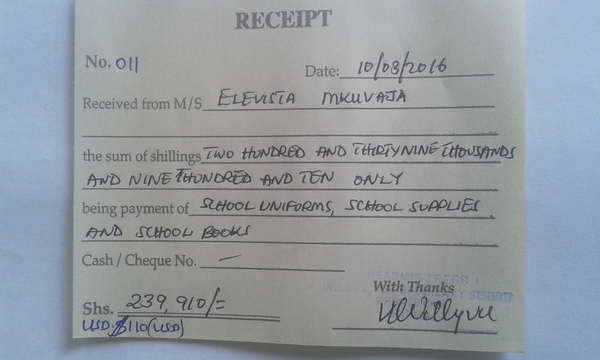 RECEIPT
No. 011
Date: 10/03/2016
Received from M/S ELEVISTA MKUVAJA
the sum of shillings TWO HUNDRED AND THIRTYNINE THOUSANDS
AND NINE HUNDRED AND TEN ONLY
being payment of SCHOOL UNIFORMS, SCHOOL SUPPLIES
AND SCHOOL BOOKS
Cash / Cheque No. —
HEADMISTRESS
With Thanks
Shs. 239,910/=
USD. $110(USD)